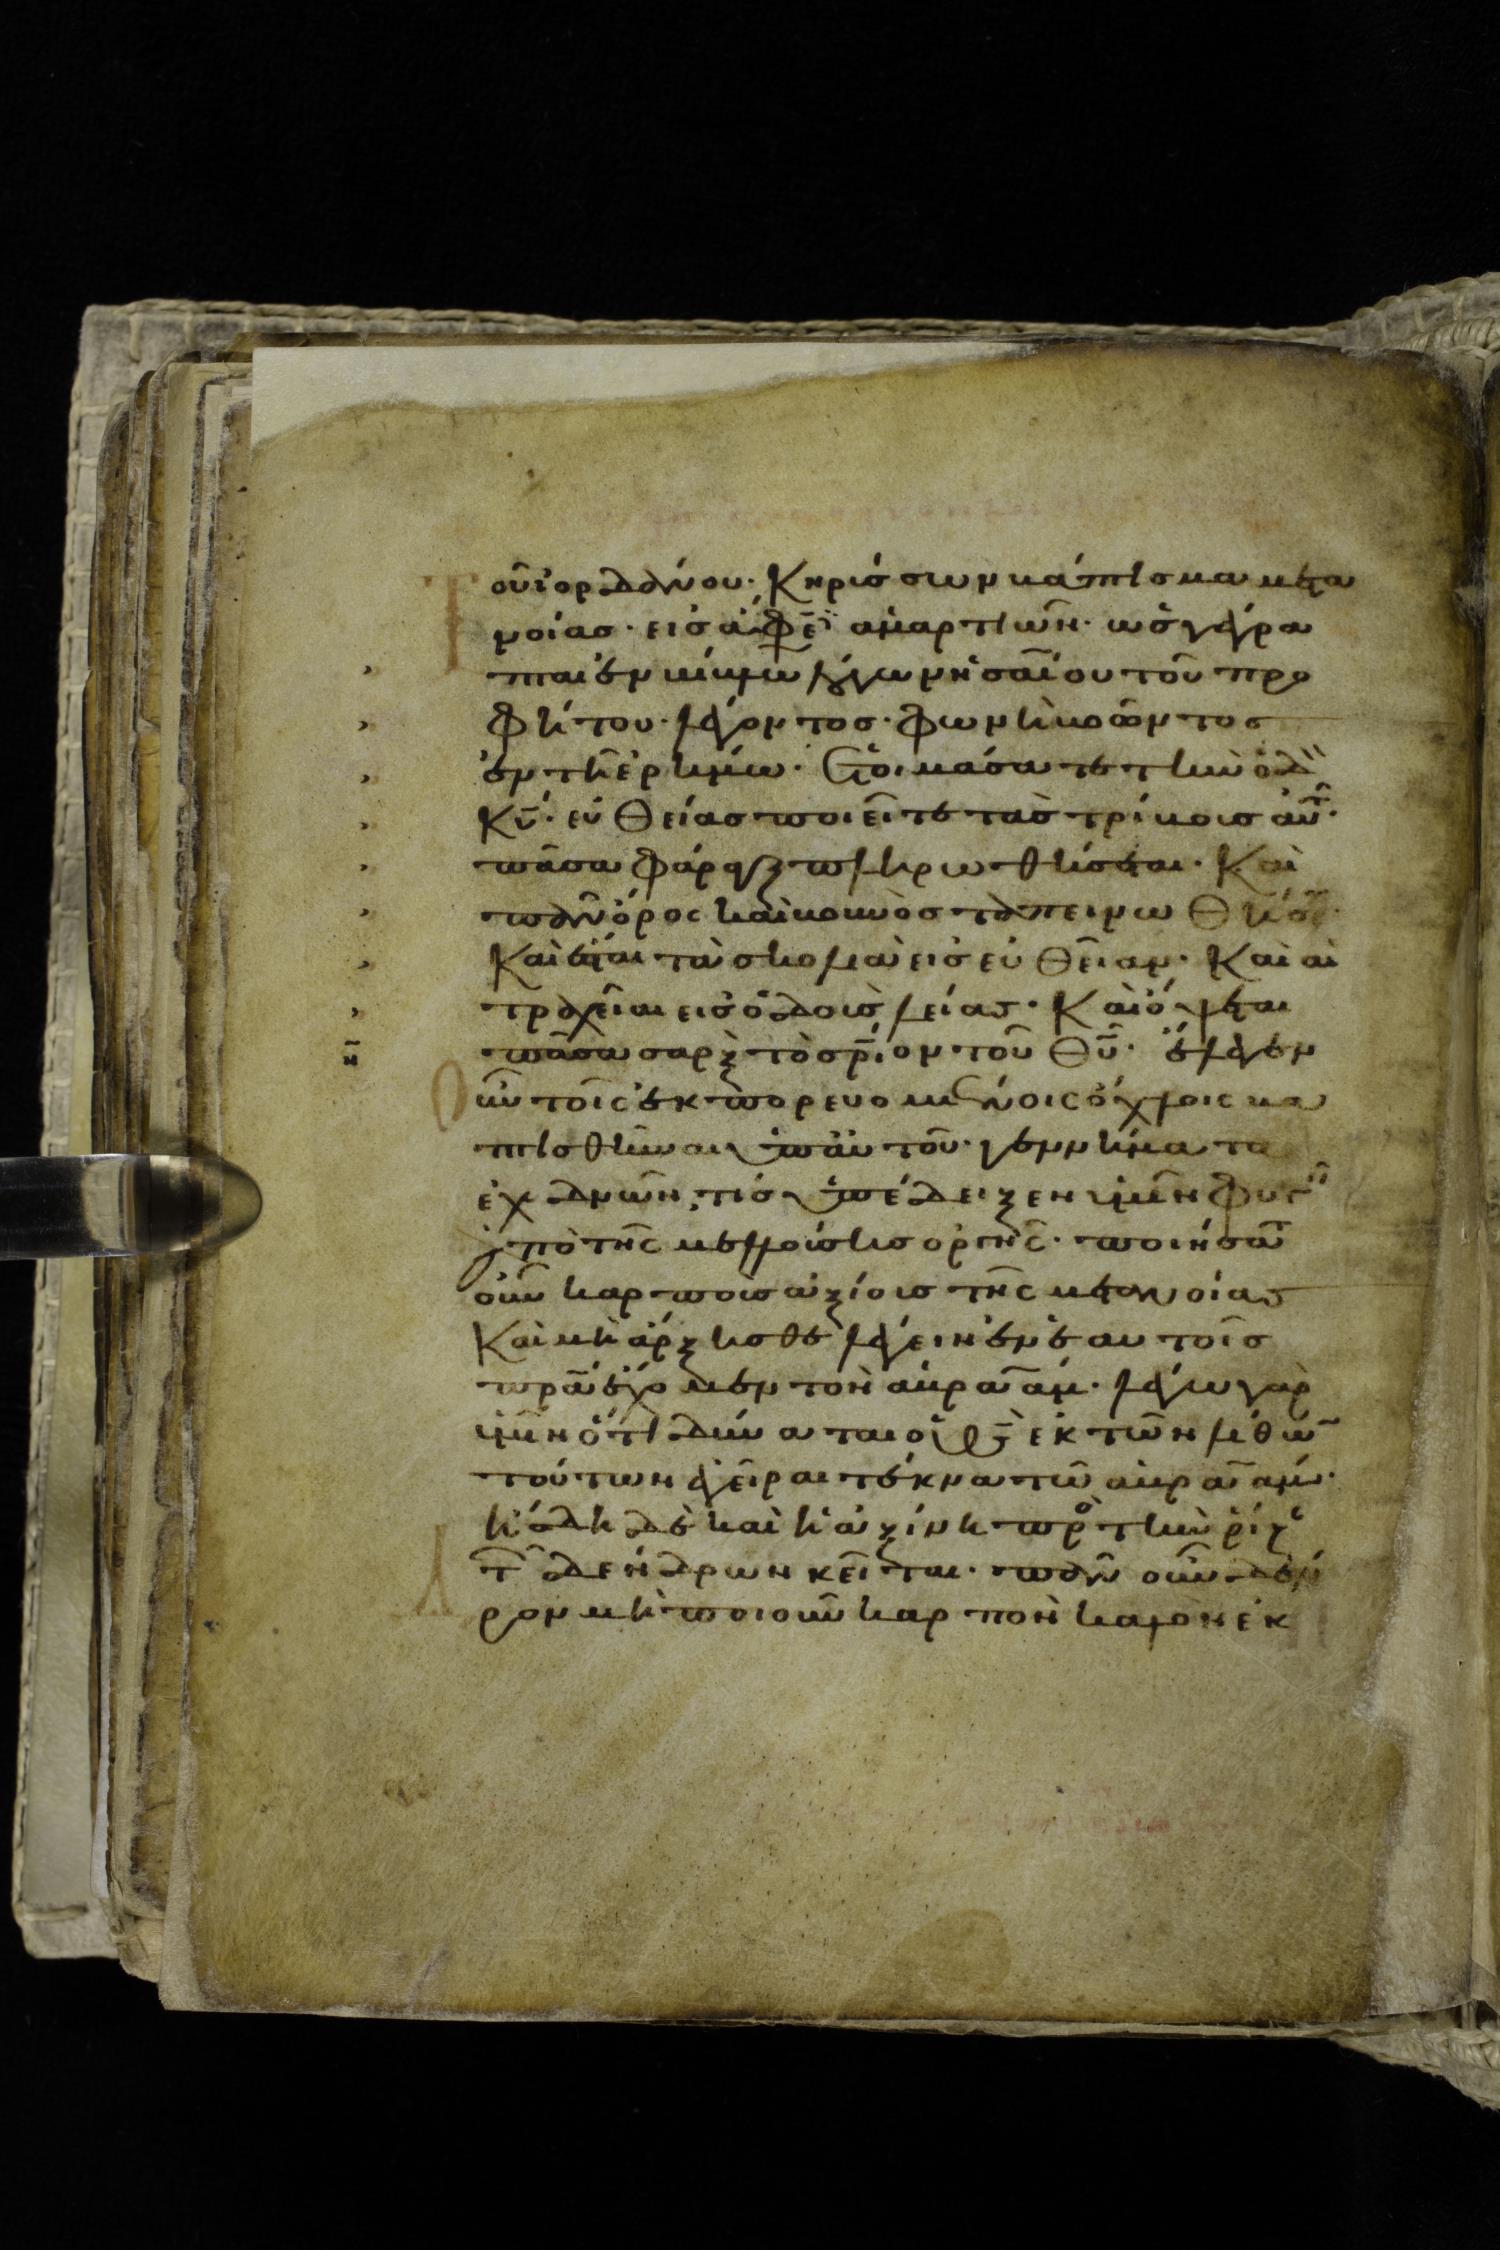 οῦ ἰορδάνου· Κηρύσσων βάπτισμα μετα
νοίας· εἰς ἄφεσϊ ἁμαρτιῶν· ὡς γέγρα
πται ἐν βίβλω λόγων ἡσαΐου τοῦ προ
φήτου· λέγοντος· φωνὴ βοῶντος
ἐν τῆ ἐρήμω· Ἑτοιμάσατε τὴν ὁδ
Κῡ· εὐθείας ποιεῖτε τὰς τρίβους αὐτ·
πᾶσα φάραγξ πληρωθήσεται· Καὶ
πᾶν ὄρος καὶ βουνὸς ταπεινωθήσε·
Καὶ ἔσται τὰ σκολιὰ εἰς εὐθεῖαν· Καὶ αἱ
τραχεῖαι εἰς ὁδοὺς λείας· Καὶ ὄψεται
πᾶσα σαρξ τὸ σρ̅ιον τοῦ Θῡ· ἔλεγεν
οὖν τοῖς ἐκπορευομένοις ὄχλοις βα
πτισθῆναι ὑπ αὐτοῦ· γεννήματα
ἐχιδνῶν, τίς ὑπέδειξεν ὑμῖν φυγεῖν
ἀπὸ τῆς μελλούσης ὀργῆς· ποιήσατ
οὖν καρποὺς ἀξίους τῆς μετανοίας
Καὶ μὴ ἄρξησθε λέγειν ἐν ἑαυτοῖς
πρ̅α ἔχομεν τὸν ἀβραάμ· λέγω γὰρ
ὑμῖν ὅτι δύναται ὁ Θ̅ς ἐκ τῶν λίθων
τούτων ἐγεῖραι τέκνα τῶ ἀβραάμ·
ἤδη δὲ καὶ ἡ ἀξίνη πρὸ τὴν ῥίζ
τ δένδρων κεῖται· πᾶν οὖν δέν
δρον μὴ ποιοῦν καρπὸν καλὸν ἐκ